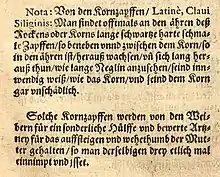 Nota: Von den Kornzapffen/ Latinè, Claui
Siliginis: Man findet offtmals an den ähren deß
Reckens oder Korns lange schwartze harte schma-
le Zapffen/ so beneben vnnd zwischen dem Korn/ so
in den ähren ist/ herauß wachsen/ vñ sich lang her-
auß thun/ wie lange Neglin anzusehen/ seind inn-
wendig weiß/ wie das Korn/ vnd seind dem Korn
gar vnschädlich.
Solche Kornzapffen werden von den Wei-
bern für ein sonderliche Hülffe vnd bewerte Artz-
ney für das auffsteigen vnd wehethumb der Mut-
ter gehalten/ so man derselbigen drey etlich mal
einnimpt vnd isset.